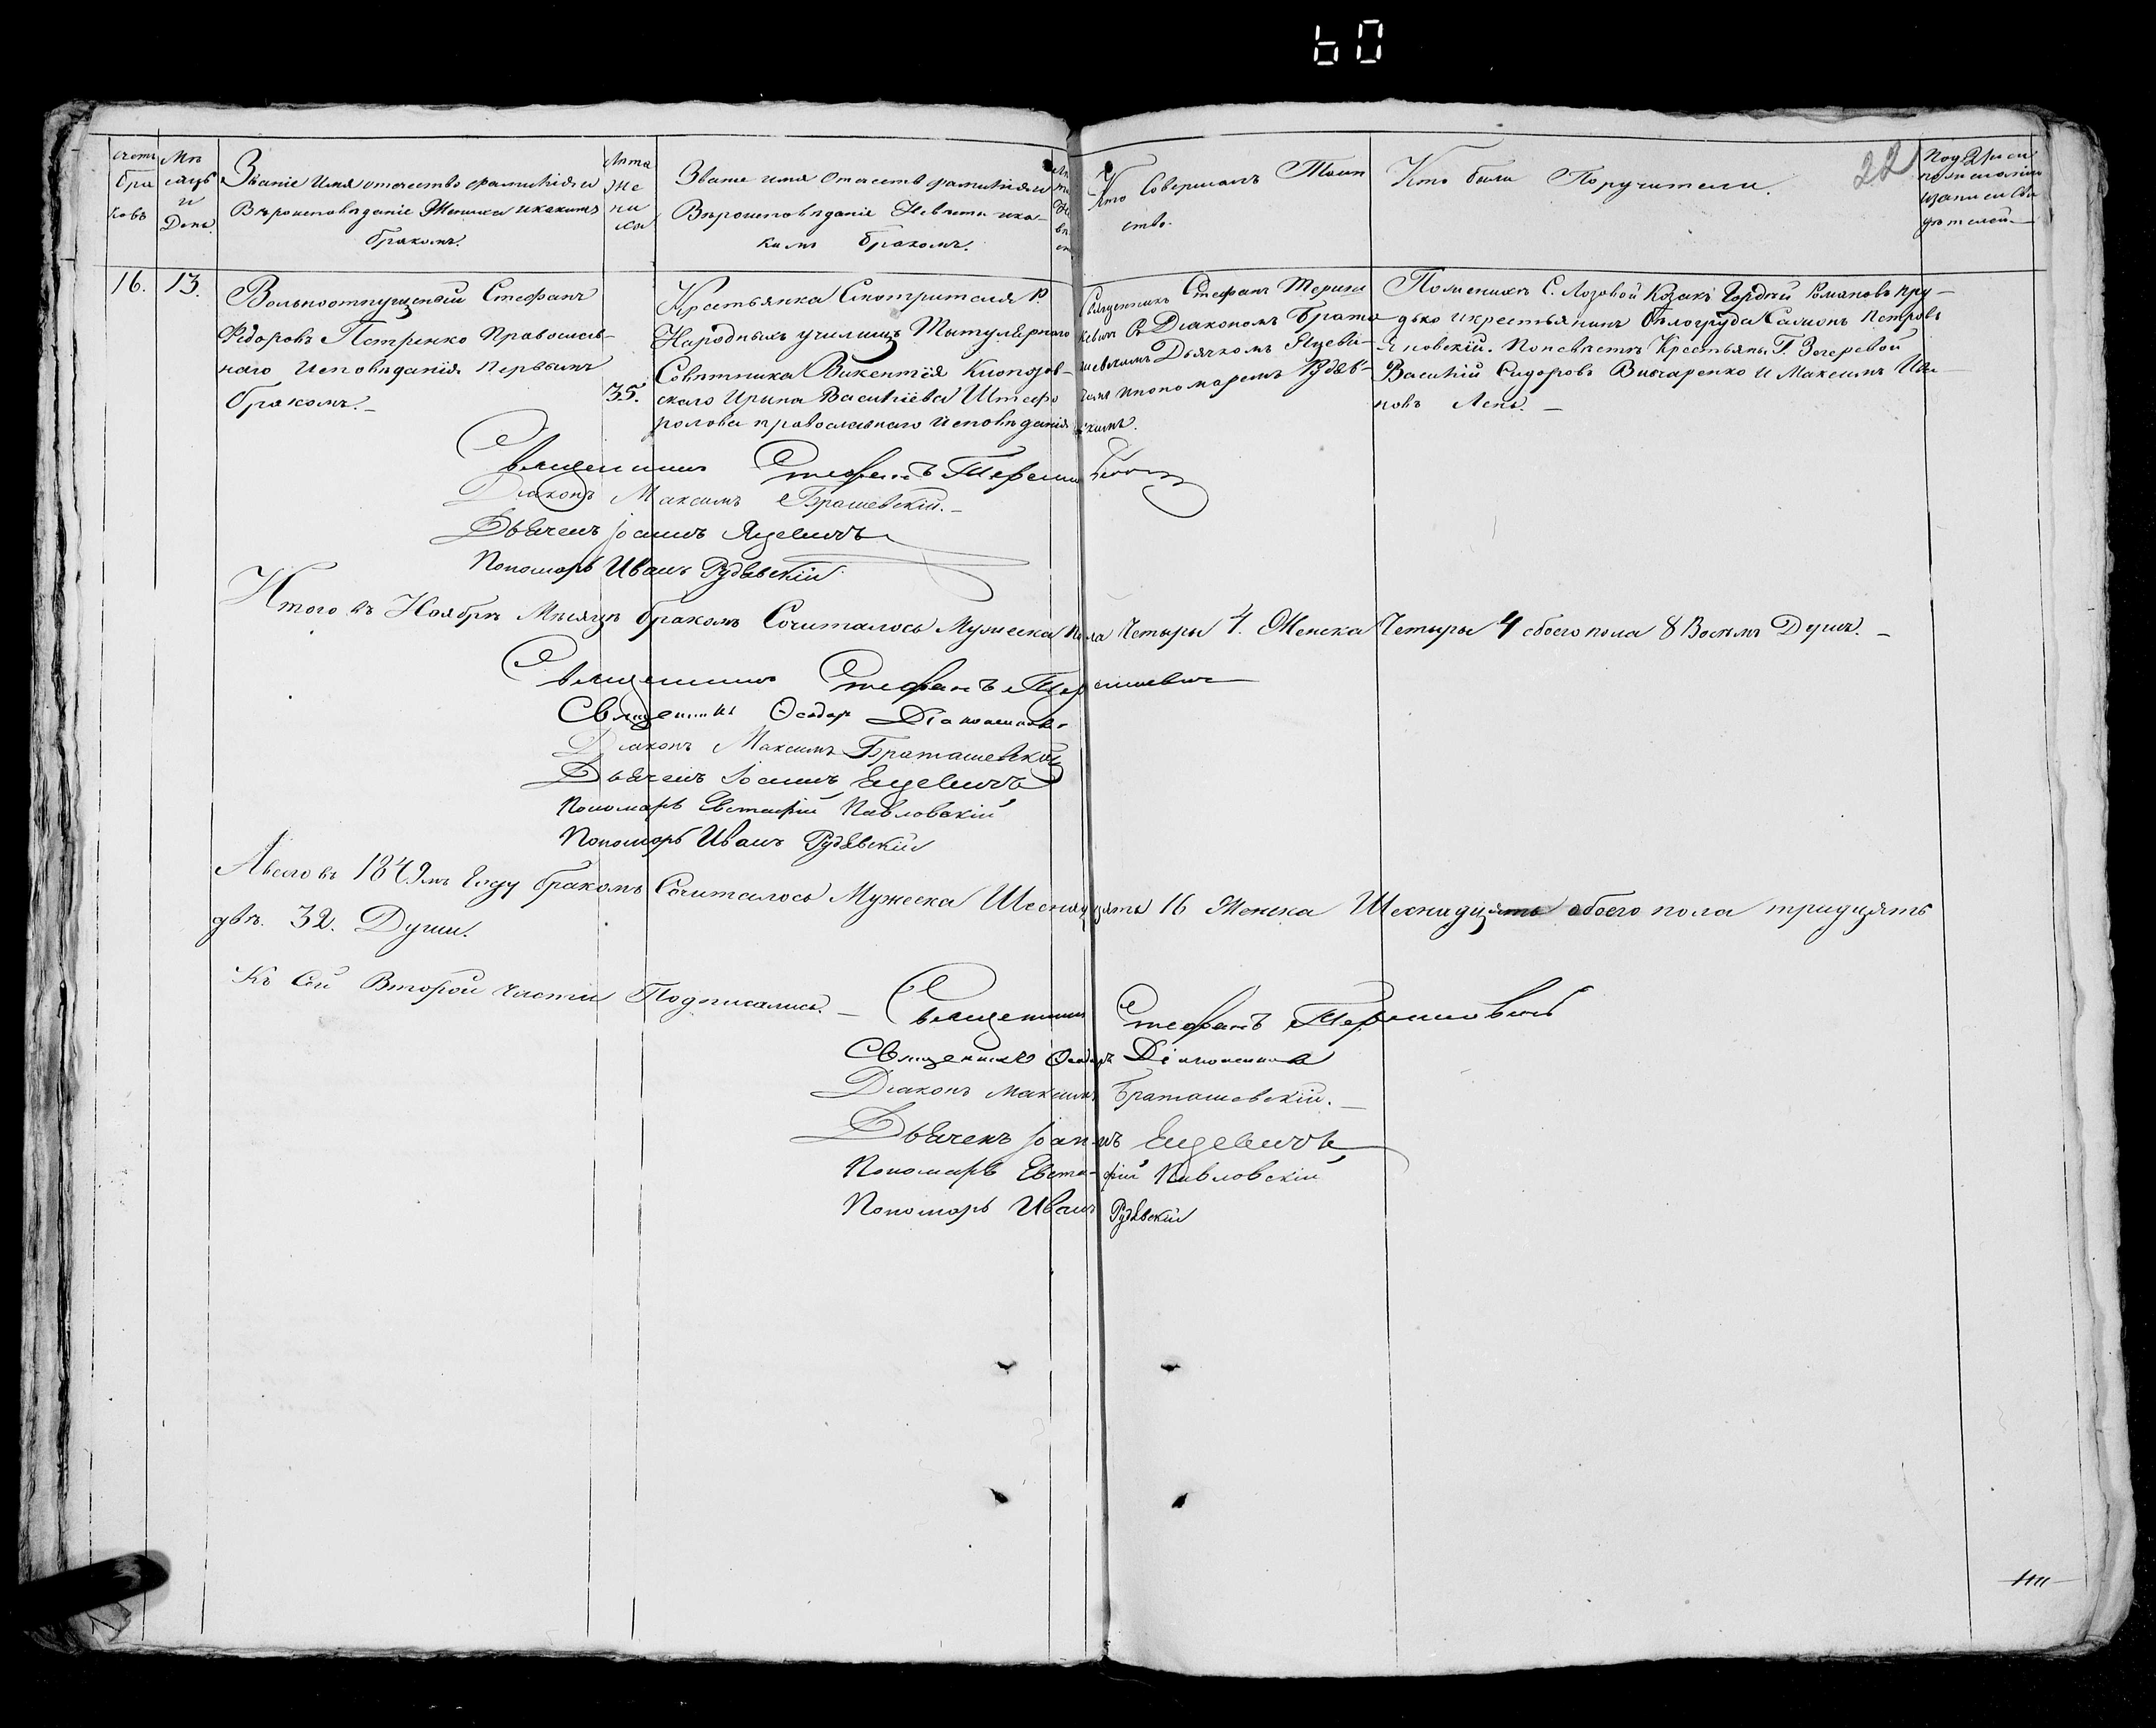 60
22
Счетъ браковъ
Мѣсяцъ и День.
Званіе Имя отечество фамилія и
Вѣроисповѣданіе Жениха и какимъ
бракомъ.
Лѣта Жениха
Званіе имя Отечеств фамилія и
Вѣроисповѣданіе Невѣсты и ка-
кимъ бракомъ.
Кто Совершалъ Таин
ство.
Кто были Поручители.
16. 13.
Вольноотпущеный Стефанъ
Федоровъ Петренко Православ-
наго Исповѣданія Первымъ
бракомъ.
35.
Крестьянка Смотрителя Р.
Народныхъ училищъ Титулярнаго
Совѣтника Викентія
скаго Ирина Василіева
православнаго Исповѣданія
Священникъ Стефанъ
Діакономъ Брата
шевскимъ Дьячкомъ Яцеви-
чемъ и пономаремъ Рудѣв-
скимъ.
По женихѣ С. Лозовой Козакъ Гордѣй Романовъ Пру-
дько и крестьянинъ Петровъ
Яновскій. По невѣстѣ Крестьяны Г.
Василій Сидоровъ Винаренко и Максимъ Ива
новъ
Священникъ Стефанъ
Діаконъ Максимъ Брашевскій.
Дьячекъ Іоаннъ Яцевичъ
Пономарь Иванъ Рудѣвскій
Итого въ Ноябрѣ Мѣсяцѣ бракомъ Сочиталось Мужеска пола Четыры 4. Женска Четыры 4 обоего пола 8 Восѣмъ Душъ.
Священникъ Стефанъ
Священникъ Феодоръ
Діаконъ Максимъ Браташевскій
Дьячекъ Іоаннъ Ецевичъ
Пономарь Евстафій Павловскій
Пономарь Иванъ Рудѣвскій
А всего въ 1849мъ Году бракомъ Сочиталось Мужеска Шеснадцять 16 Женска Шеснадцять обоего пола тридцять
двѣ. 32. Души.
Къ Сей Второй части Подписались.
Священникъ Стефанъ
Священникъ Феодоръ
Діаконъ Максимъ Браташевскій.
Дьячекъ Іоаннъ Ецевичъ
Пономарь Евстафій Павловскій
Пономарь Иванъ Рудѣвскій